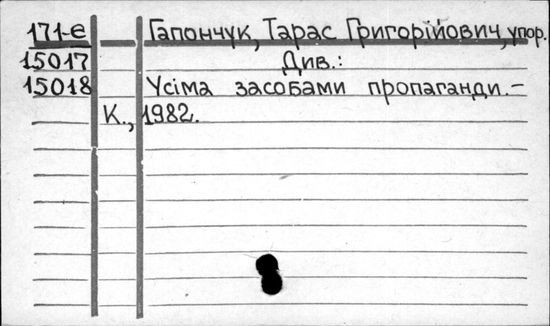 171-е Гапончук, Тарас Григорійович, упор.
15017 Див.:
15018 Усіма засобами пропаганди.-
К., 1982.